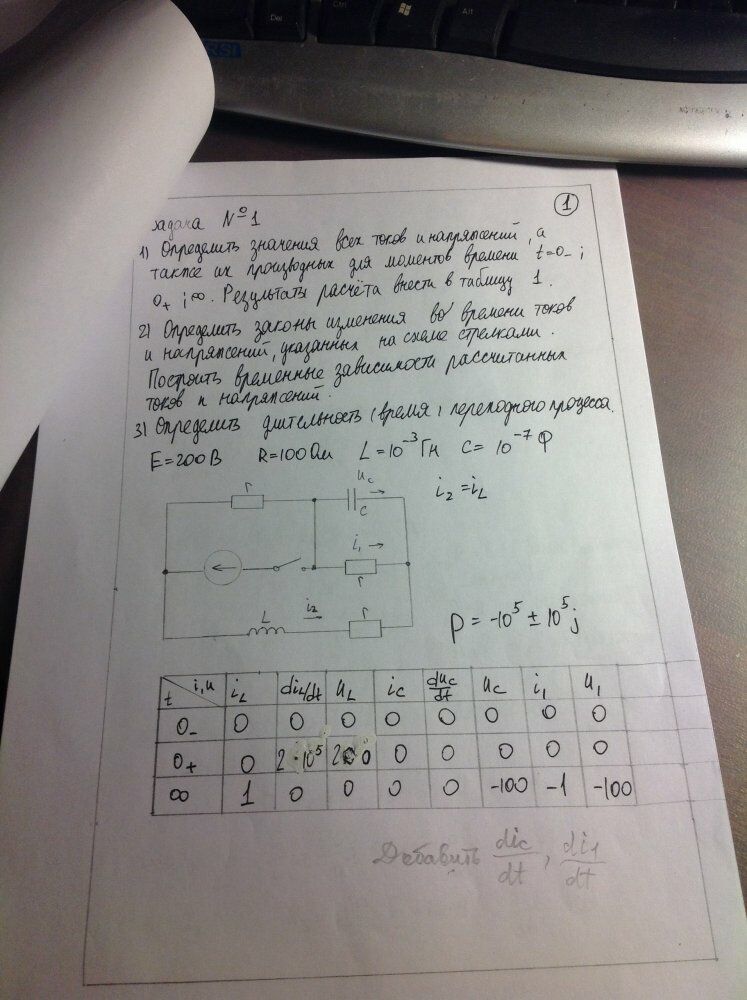 Del
Ctrl
Alt
RSI
1
задача №1
1) Определить значения всех токов и напряжений, а
также их производных для моментов времени t=0₋ ;
0₊ ; ∞. Результаты расчёта внести в таблицу 1.
2) Определить законы изменения во времени токов
и напряжений, указанных на схеме стрелками.
Построить временные зависимости рассчитанных
токов и напряжений.
3) Определить длительность (время) переходного процесса.
E=200В R=100Ом L=10⁻³Гн C=10⁻⁷Ф
r
uc
C
i₂=iL
i₁
r
L
i₂
r
p=-10⁵±10⁵j
t i,u iL diL/dt uL ic duc/dt uc i₁ u₁
0₋ 0 0 0 0 0 0 0 0
0₊ 0 2·10⁵ 200 0 0 0 0 0
∞ 1 0 0 0 0 -100 -1 -100
Добавить dic/dt, di₁/dt